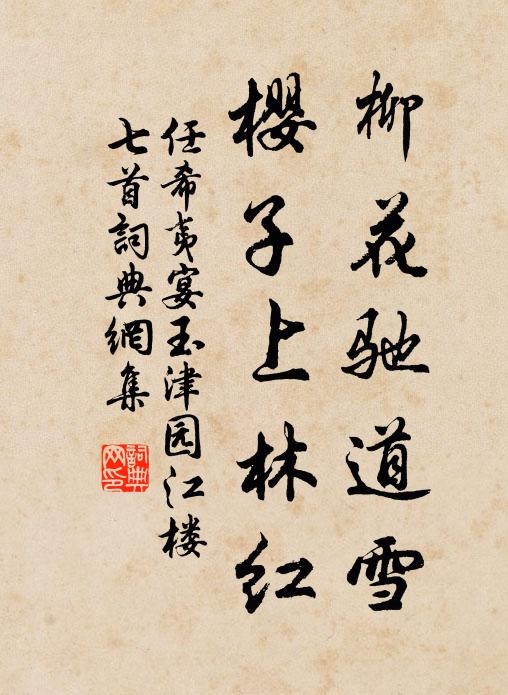 柳花驰道雪
櫻子上林红
任希夷宴玉津园江楼
七首詞典網集
詞典網印